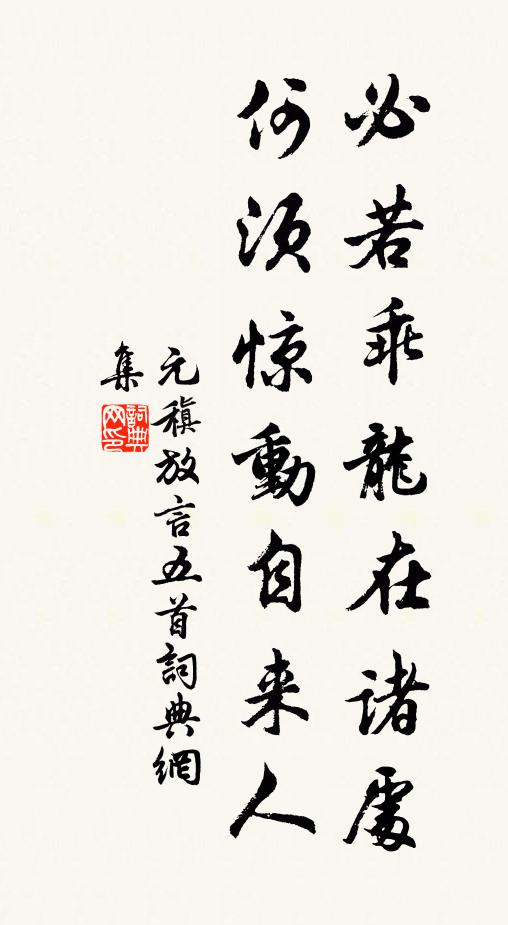 必若乘龍在諸處
何須惊動自来人
元稹放言五首詞典網
集
詞典网印